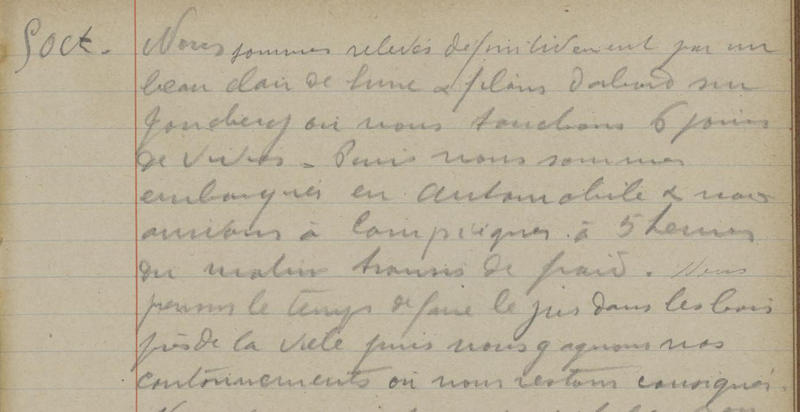 9 Oct. Nous sommes relevés définitivement par un
beau clair de lune & filons d'abord sur
Jonchery où nous touchons 6 jours
de vivres - Puis nous sommes
embarqués en automobile & nous
arrivons à Compiègne à 5 heures
du matin transis de froid. Nous
prenons le temps de faire le jus dans les bois
près de la ville puis nous gagnons nos
cantonnements où nous restons consignés.